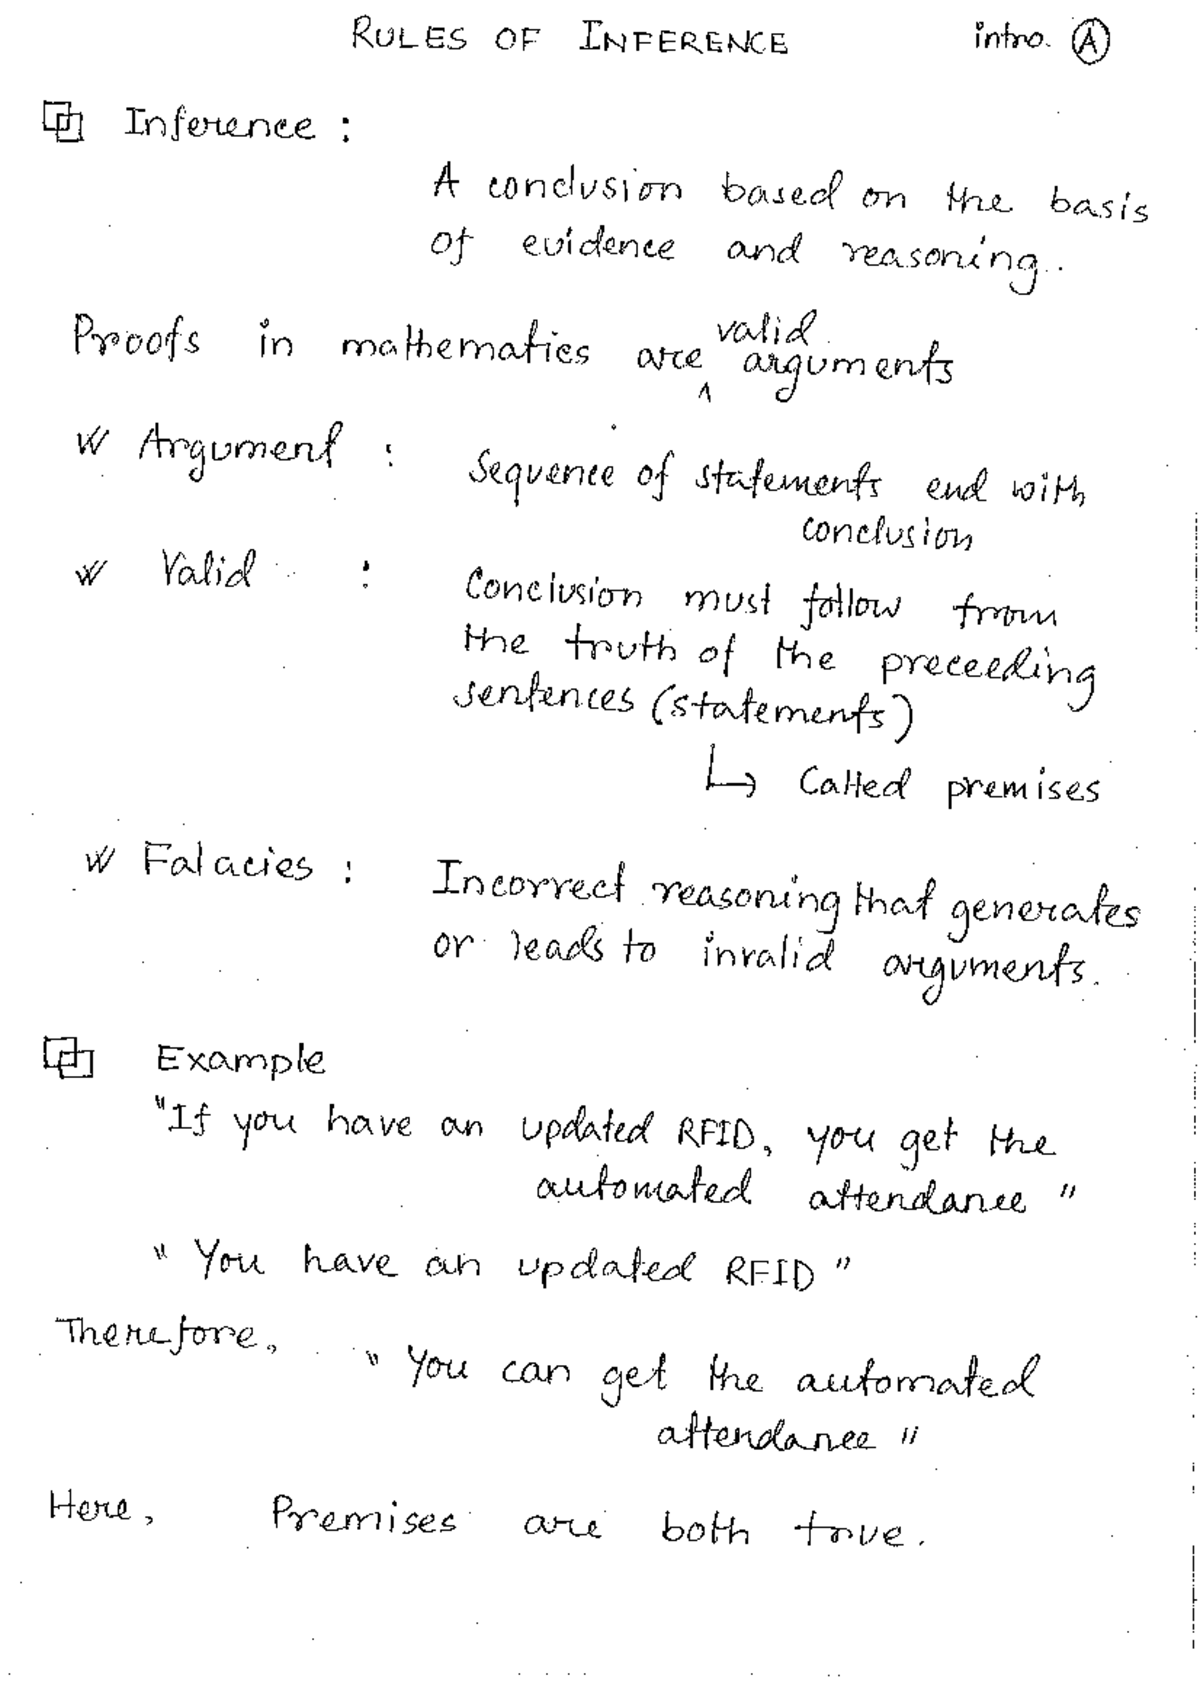 RULES OF INFERENCE intro. A
Inference :
A conclusion based on the basis
of evidence and reasoning..
Proofs in mathematics are valid arguments
Argument : Sequence of statements end with
conclusion
Valid : Conclusion must follow from
the truth of the preceeding
sentences (statements)
↳ Called premises
Falacies : Incorrect reasoning that generates
or leads to invalid arguments.
Example
"If you have an updated RFID, you get the
automated attendance"
"You have an updated RFID"
Therefore, "You can get the automated
attendance"
Here, Premises are both true.